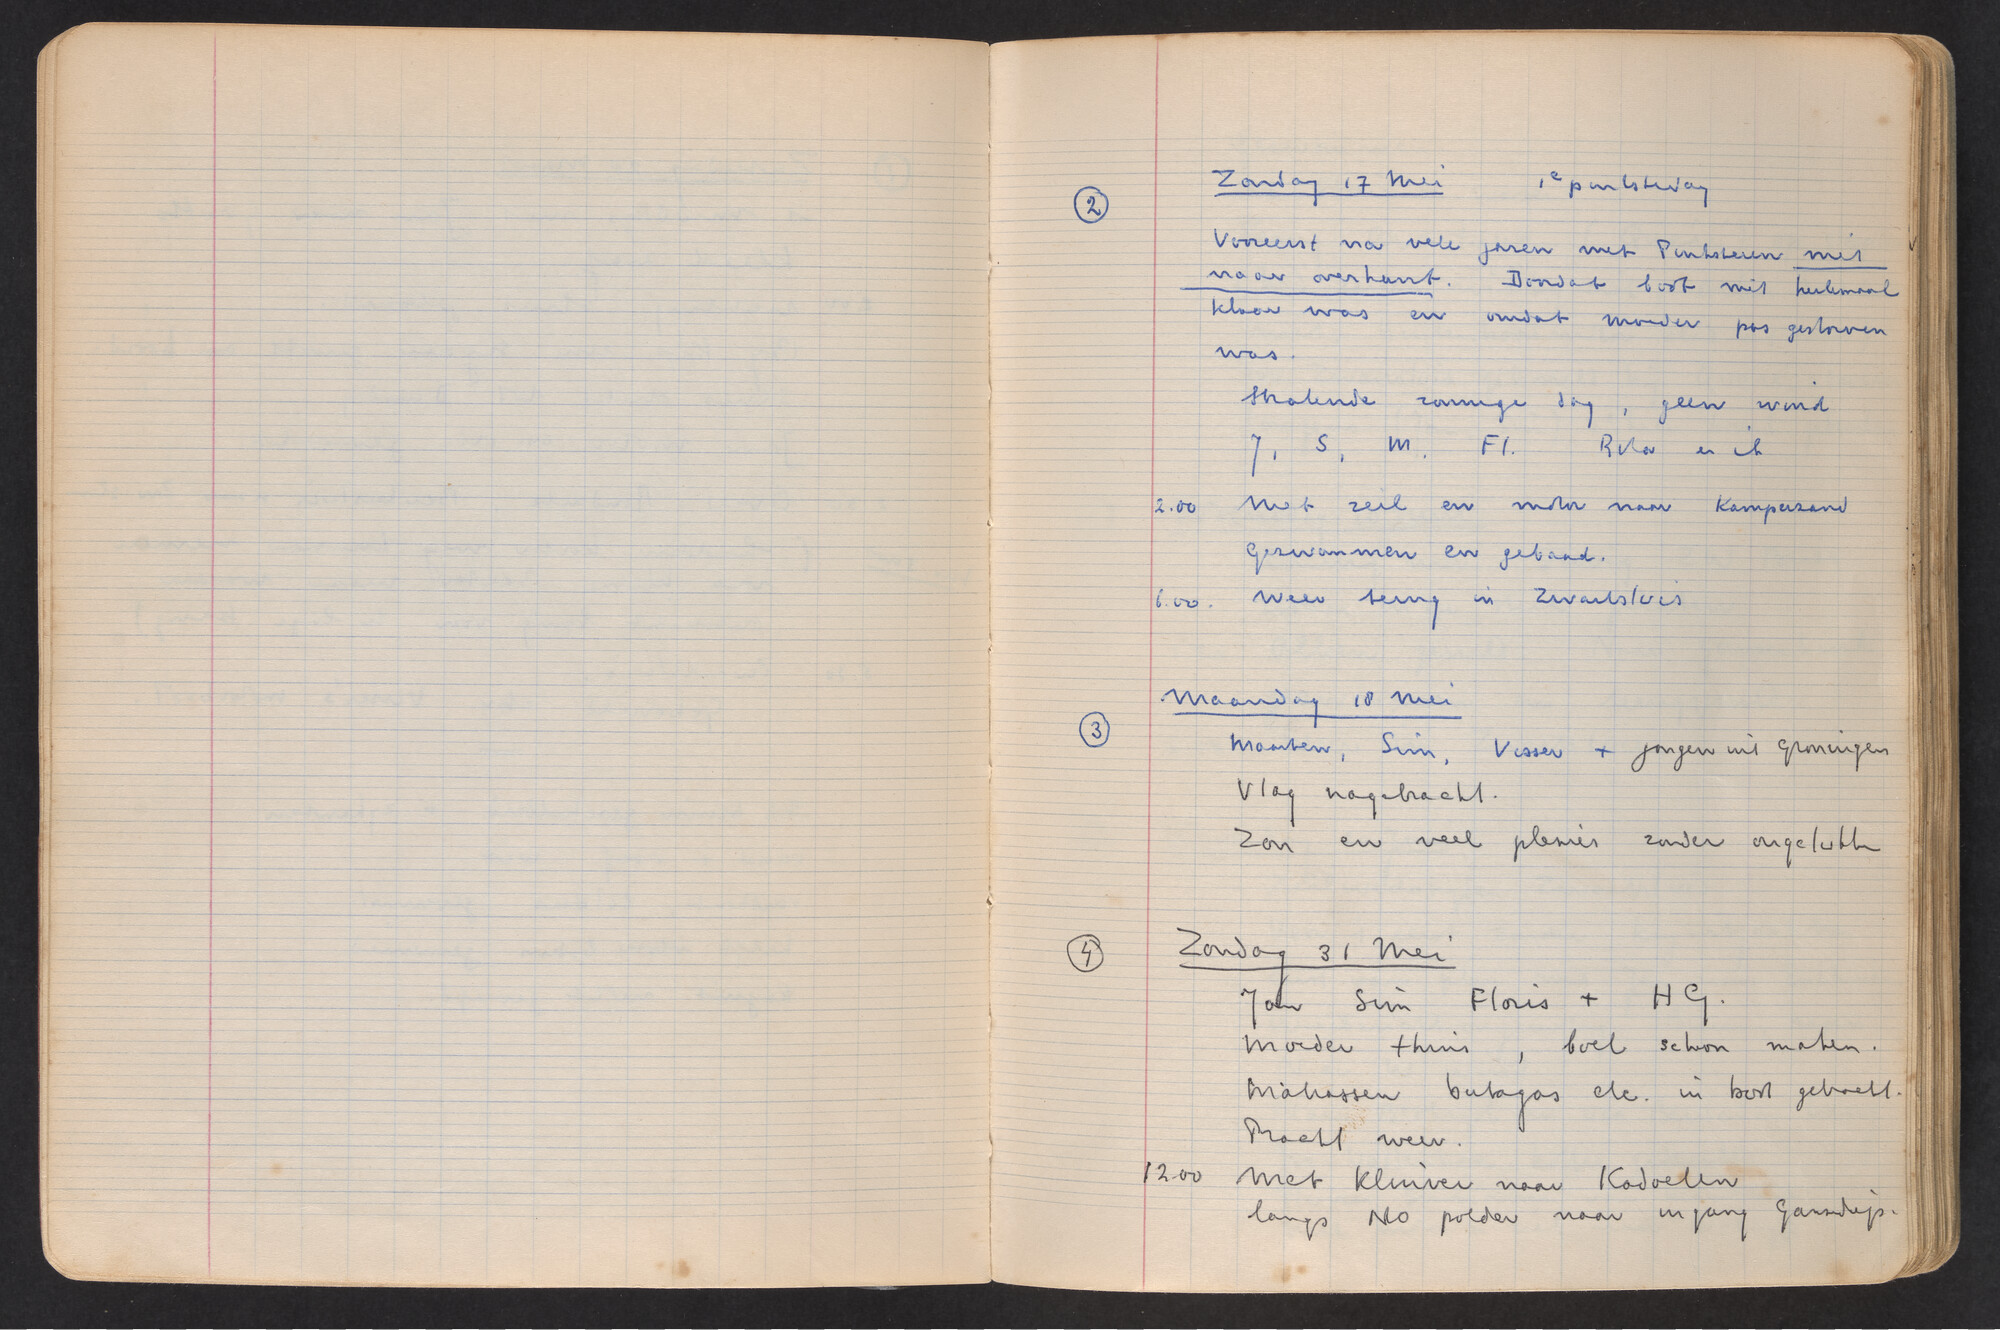 2
Zondag 17 Mei 1e pinksterdag
Vooreerst na vele jaren met Pinksteren niet
naar overkant. Doordat boot niet heelemaal
klaar was en omdat moeder pas gestorven
was.
Stralende zonnige dag, geen wind
J, S, M. Fl. en ik
2.00 Met zeil en motor naar Kamperzand
gezwommen en gebaad.
6.00. weer terug in Zwartsluis
3
Maandag 18 Mei
Maarten, Sim, Visser + jongen uit Groningen
Vlag nagebracht.
Zon en veel plezier zonder ongelukken
4
Zondag 31 Mei
Jan Sim Floris + HG.
Moeder thuis, boel schoon maken.
Matrassen butagas etc. in boot gebracht.
Pracht weer.
12.00 Met kluiver naar Kadoelen
langs NO polder naar ingang Ganzediep.